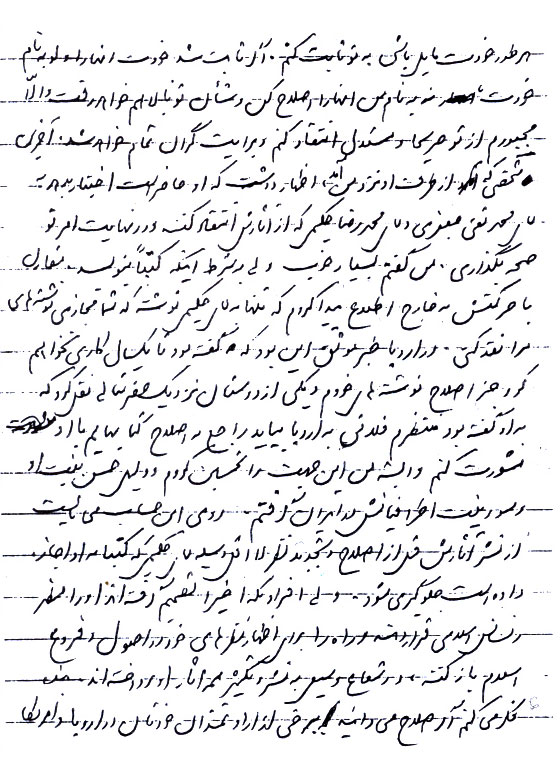 هر طور خودت مایل باشی به تو ثابت کنم. اگر ثابت شد خودت آنها را ولو به نام
خودت یا به نام من آنها را اصلاح کن و شأن تو بالا هم خواهد رفت والّا
مجبورم از تو صریحا و مستدل انتقاد کنم و برایت گران تمام خواهد شد. آخرین
شخصی که از طرف او نزد من آمد، اظهار داشت که او حاضر است اختیار بدهد به
آقای محمد تقی جعفری و آقای محمد رضا حکیمی که از آثارش انتقاد کنند و در نهایت امر تو
صحه بگذاری. من گفتم بسیار خوب ولی بشرط اینکه کتباً بنویسد. مقارن
با حرکتش به خارج اطلاع پیدا کردم که تنها به آقای حکیمی نوشته که شما مجازی نوشته‌های
مرا نقد کنی. و در اروپا خبر موثق این بود که گفته بود تا یکسال کاری نخواهم
کرد جز اصلاح نوشته‌های خودم و یکی از دوستان نزدیک نقل کرد که
به او گفته بود منتظرم فلانی به اروپا بیاید راجع به اصلاح کتابهایم با او
مشورت کنم و البته من این جهت را تحسین کردم و دلیل حسن نیت او
و سوء نیت اطرافیانش در ایران گرفتم. روی این حساب می‌بایست
از نشر آثارش قبل از اصلاح و تجدید نظر لااقل وسیله آقای حکیمی که کتبا به او اجازه
داده است جلوگیری بشود. ولی افرادی که اخیرا تصمیم گرفته‌اند او را مظهر
رنسانس اسلامی قرار دهند و راه را برای اظهار نظرهای خود در اصول و فروع
اسلام باز کنند، در شعاع وسیعی به نشر و تکثیر همه آثار او پرداخته‌اند.
فکر می‌کنم اگر صلاح می‌دانید برخی از ارادتمندان خودتان در اروپا و امریکا